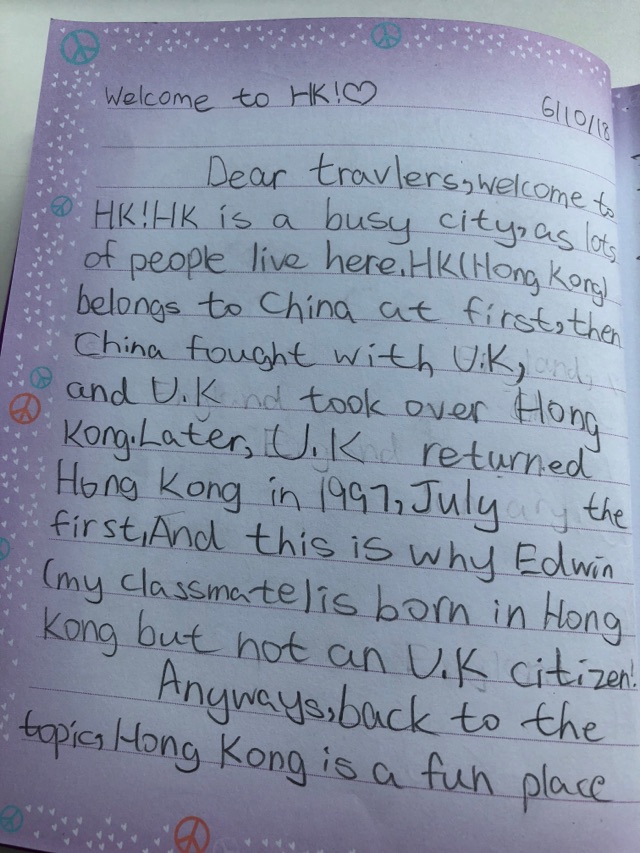 Welcome to HK!♡
6/10/18
Dear travlers, welcome to
HK! HK is a busy city, as lots
of people live here. HK (Hong Kong)
belongs to China at first, then
China fought with U.K,
and U.K took over Hong
Kong. Later, U.K returned
Hong Kong in 1997, July the
first, And this is why Edwin
(my classmate) is born in Hong
Kong but not an U.K citizen!
Anyways, back to the
topic, Hong Kong is a fun place